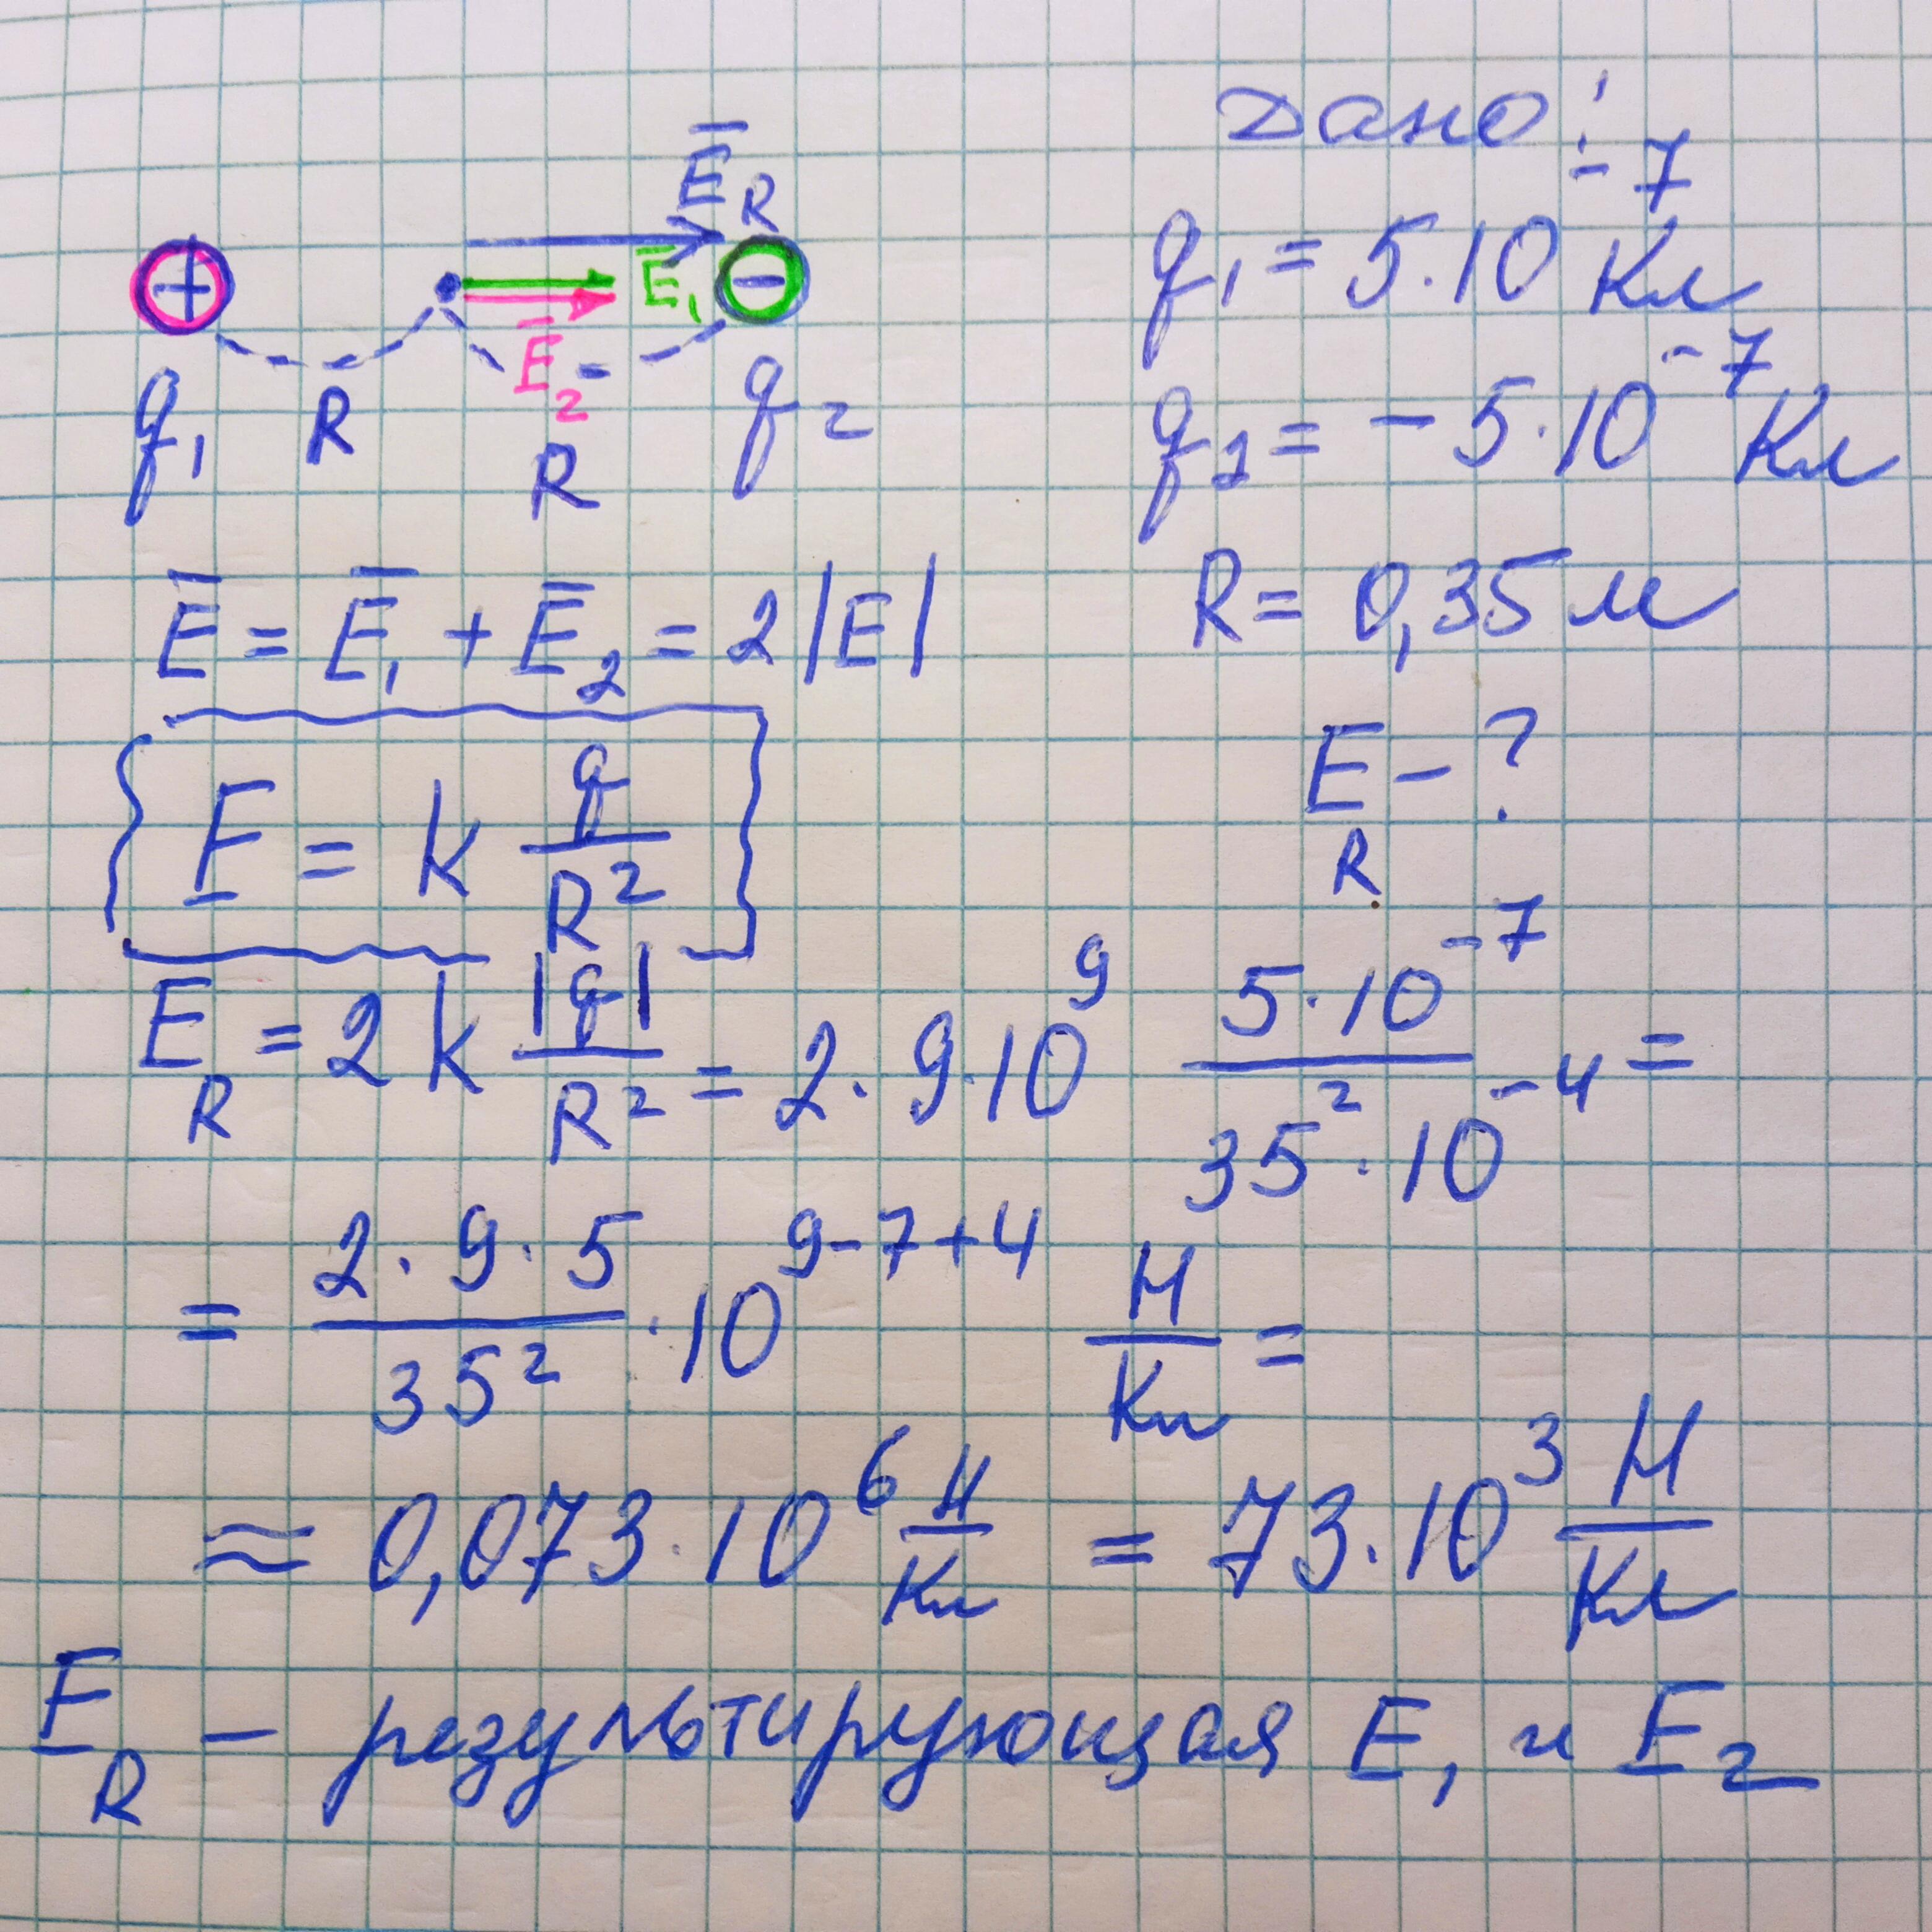 Дано:
q₁ = 5·10⁻⁷ Кл
q₂ = −5·10⁻⁷ Кл
R = 0,35 м
E_R − ?
E̅_R
+ E̅₁ −
E̅₂
q₁ R R q₂
E̅ = E̅₁ + E̅₂ = 2|E|
E = k q/R²
E_R = 2k |q|/R² = 2·9·10⁹ 5·10⁻⁷/35²·10⁻⁴ =
= 2·9·5/35² ·10⁹⁻⁷⁺⁴ Н/Кл =
≈ 0,073·10⁶ Н/Кл = 73·10³ Н/Кл
E_R − результирующая E₁ и E₂